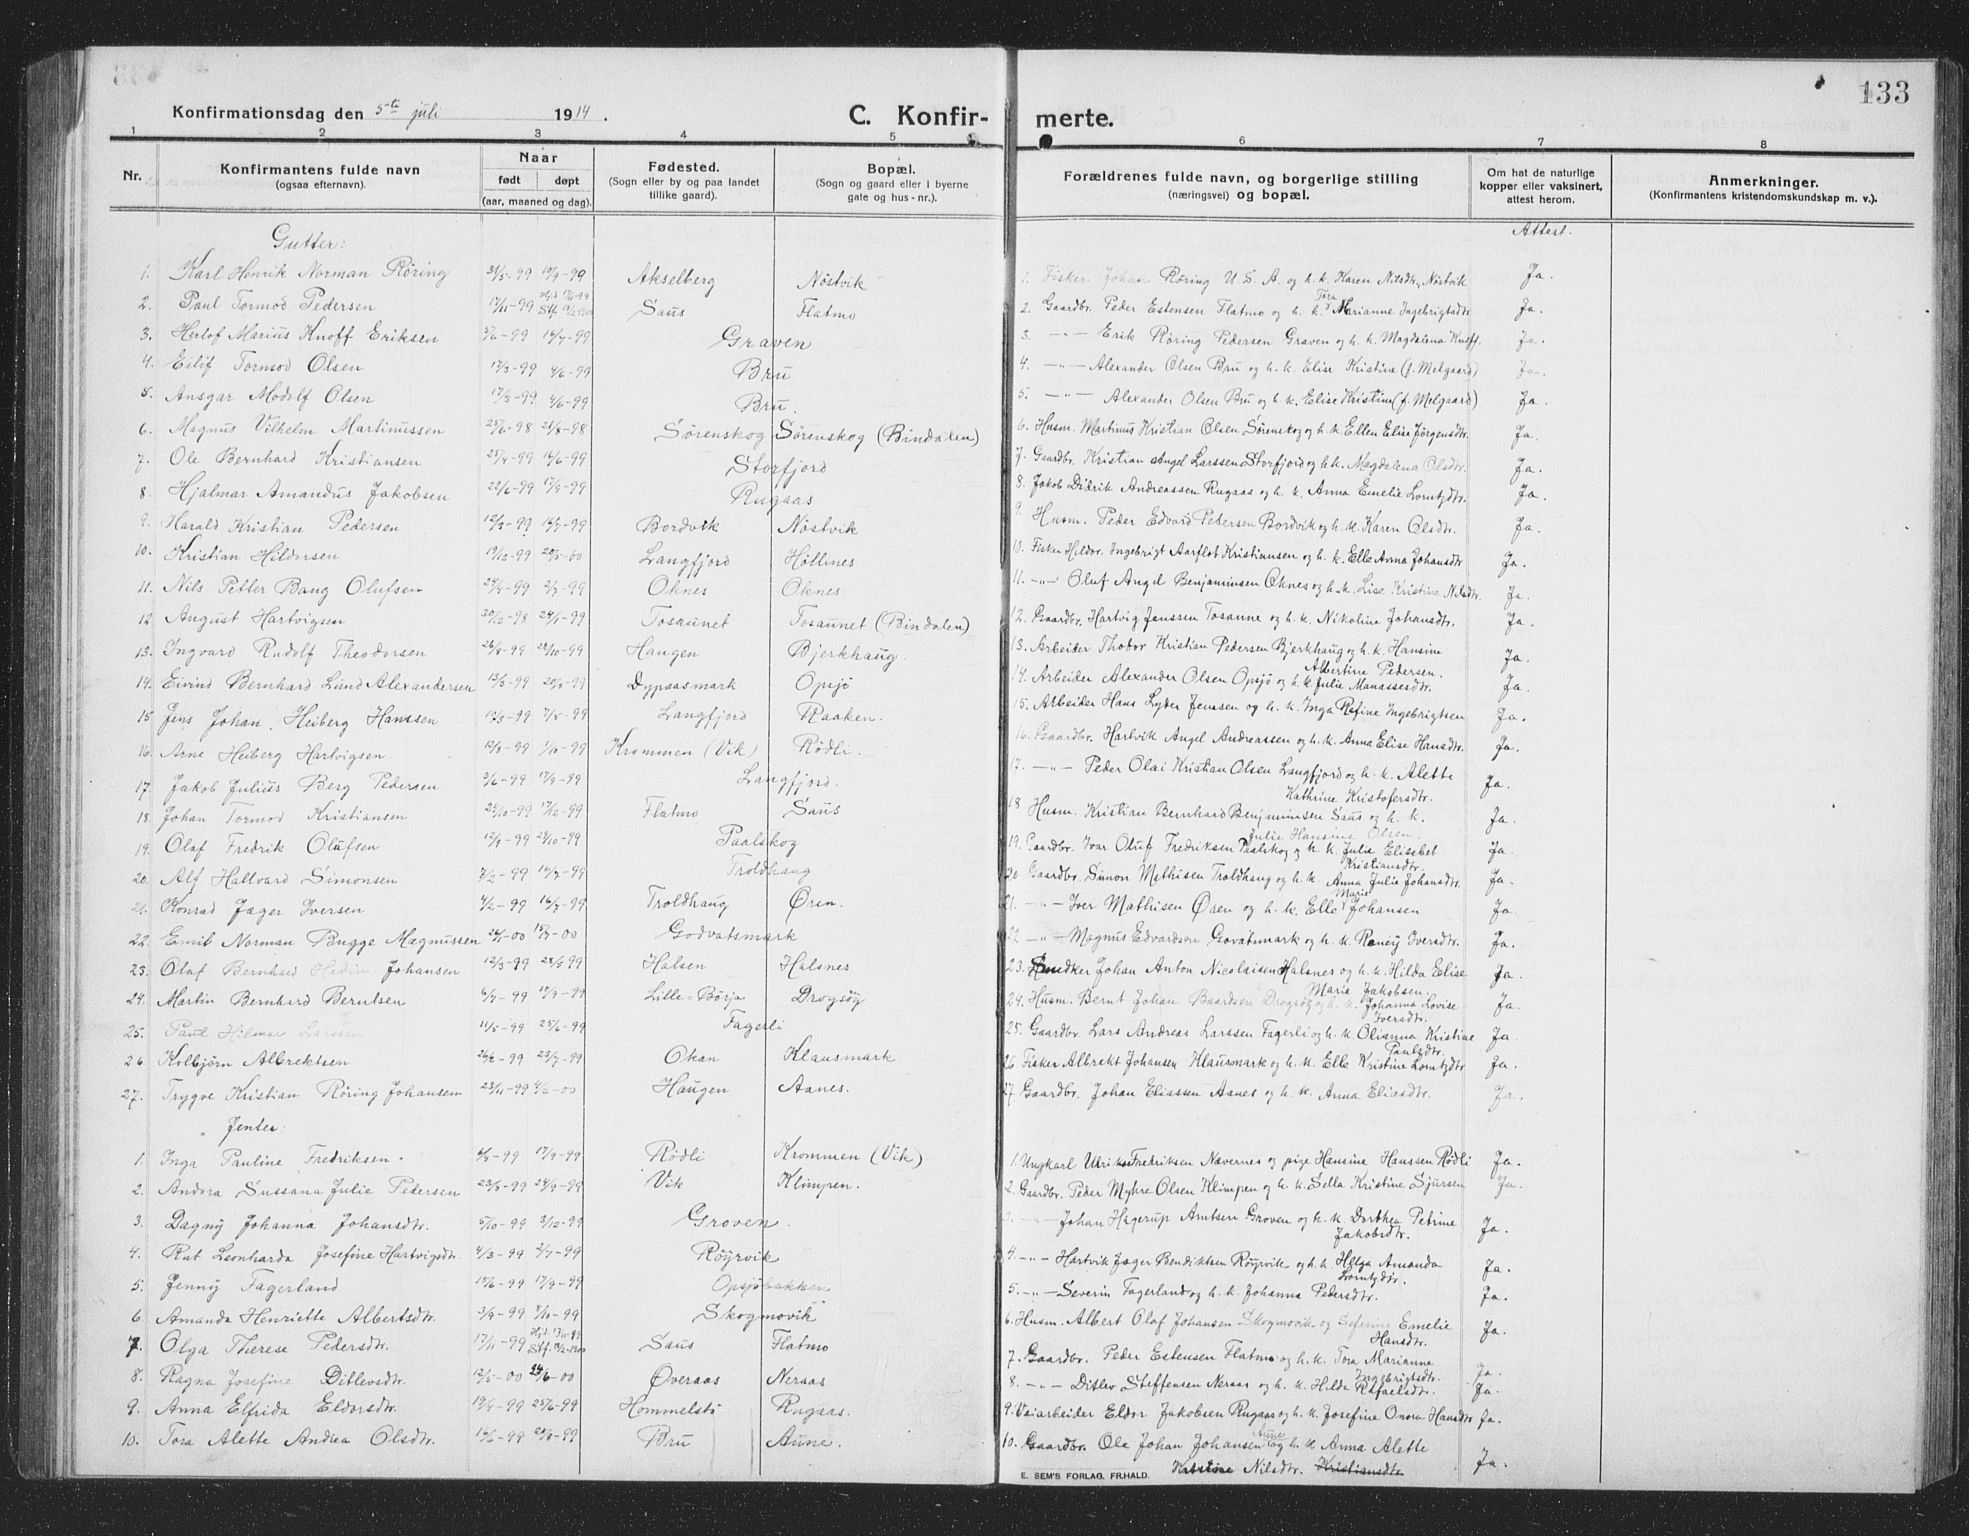 133
Konfirmationsdag den 5te juli 1914.
C. Konfir- merte.
1 2 3 4 5 6 7 8
Nr. Konfirmantens fulde navn (ogsaa efternavn). Naar født døpt (aar, maaned og dag). Fødested. (Sogn eller by og paa landet tillike gaard). Bopæl. (Sogn og gaard eller i byerne gate og hus-nr.). Forældrenes fulde navn, og borgerlige stilling (næringsvei) og bopæl. Om hat de naturlige kopper eller vaksinert, attest herom. Anmerkninger. (Konfirmantens kristendomskundskap m. v.).
Gutter: Attest.
1. Karl Henrik Norman Røring 31/5-99 Akselberg Nøstvik 1. Fisker Johan Røring U. S. A. og h. k. Karen Nilsdtr, Nøstvik Ja.
2. Paul Tormod Pedersen 17/11-99 Saus Flatmo 2. Gaardbr. Peder Estensen Flatmo og h. k. Tora Marianne Ingebrigtsdtr. Ja.
3. Herlof Marius Knoff Eriksen 5/6-99 16/7-99 Graven 3. -"- Erik Røring Pedersen Graven og h. k. Magdalena Knoff. Ja.
4. Eilif Tormod Olsen 17/3-99 4/6-99 Bru 4. -"- Alexander Olsen Bru og h. k. Elise Kristine (f. Melgaard) Ja.
5. Ansgar Modolf Olsen 17/3-99 4/6-99 Bru. 5. -"- Alexander Olsen Bru og h. k. Elise Kristine (f. Melgaard) Ja.
6. Magnus Vilhelm Martinussen 25/6-98 21/8-98 Sørenskog Sørenskog (Bindalen) 6. Husm. Martinus Kristian Olsen Sørenskog og h. k. Ellen Elise Jørgensdtr. Ja.
7. Ole Bernhard Kristiansen 25/4-99 16/6-99 Storfjord 7. Gaardbr. Kristian Angel Larssen Storfjord og h. k. Magdalena Olsdtr. Ja.
8. Hjalmar Amandus Jakobsen 22/6-99 17/9-99 Rugaas 8. Jakob Didrik Andreassen Rugaas og h. k. Anna Emelie Lorntzdtr. Ja.
9. Harald Kristian Pedersen 12/3-99 16/7-99 Bordvik Nøstvik 9. Husm. Peder Edvard Petersen Bordvik og h. k. Karen Olsdtr. Ja.
10. Kristian Hildorsen Langfjord Høllnes 10. Fisker Hildor Ingebrigt Aarflot Kristiansen og h. k. Elle Anna Johansdtr Ja.
11. Nils Petter Bang Olufsen 24/4-99 2/7-99 Oknes Oknes. 11. -"- Oluf Angel Benjaminsen Oknes og h. k. Lise Kristine Nilsdtr. Ja.
12 August Hartvigsen 30/12-98 24/1-99 Tosaunet Tosaunet (Bindalen) 12. Gaardbr. Hartvig Janssen Tosaune og h. k. Nikoline Johansdtr. Ja.
13. Ingvard Rudolf Theodorsen 26/8-99 22/10-99 Haugen Bjerkhaug. 13. Arbeider Thodor Kristian Pedersen Bjerkhaug og h. k. Hansine Albertine Pedersen. Ja.
14. Eivind Bernhard Lund Alexandersen 13/5-99 20/8-99 Dypaasmark Opsjø 14. Arbeider Alexander Olsen Opsjø og h. k. Julie Manassesdtr. Ja.
15 Jens Johan Heiberg Hanssen 12/3-99 7/5-99 Langfjord Raaken. 15. Arbeider Hans Lyder Jenssen og h. k. Inga Refine Ingebrigtsen Ja.
16. Arne Heiberg Hartvigsen 12/8-99 1/10-99 Krommen (Vik) Rødli. 16. Gaardbr. Hartvik Angel Andreassen og h. k. Anna Elise Hansdtr. Ja.
17. Jakob Julius Berg Pedersen 3/6-99 17/9-99 Langfjord. 17. -"- Peder Olai Kristian Olsen Langfjord og h. k. Alette Kathrine Kristofersdtr. Ja.
18. Johan Tormod Kristiansen 21/10-99 17/12-99 Flatmo Saus 18 Husm. Kristian Bernhard Benjaminsen Saus og h. k. Julie Hansine Olsen. Ja.
19. Olaf Fredrik Olufsen 12/9-99 29/10-99 Paalskog 19. Gaardbr. Ivar Oluf Fredriksen Paalskog og h. k. Julie Elisabet Kristiansdtr. Ja.
20. Alf Hallvard Simonsen 7/2-99 16/7-99 Troldhaug 20 Gaardbr. Simon Mathisen Troldhaug og h. k. Anna Julie Johansdtr. Ja.
21. Konrad Jæger Iversen 4/2-99 16/7-99 Troldhaug Øren. 21. -"- Iver Mathisen Øren og h. k. Elle Marie Johansen Ja.
22. Emil Norman Bugge Magnussen Godvatsmark 22 -"- Magnus Edvardsen Govatsmark og h. k. Ronny Iversdtr. Ja.
23. Olaf Bernhard Johansen 12/3-99 28/5-99 Halsen Halsnes 23. Johan Anton Nicolaisen Halsnes og h. k. Hilda Elise Marie Jakobsen. Ja.
24. Martin Bernhard Berntsen 6/7-99 17/9-99 Lille-Børja Drogsøy 24. Husm. Bernt Johan Baardsen Drogsøy og h. k. Johanna Lovise Iversdtr. Ja.
25. Paul Hilmar Larssen 11/5-99 25/6-99 Fagerli 25. Gaardbr. Lars Andreas Larssen Fagerli og h. k. Olianna Kristine Paulsdtr. Ja.
26. Kolbjørn Albrektsen 23/7-99 Okan Klausmark 26. Fisker Albrekt Johansen Klausmark og h. k. Elle Kristine Lorntzdtr. Ja.
27. Trygve Kristian Røring Johansen 23/11-99 4/2-00 Haugen Aanes. 27. Gaardbr. Johan Eliassen Aanes og h. k. Anna Eliasdtr. Ja.
Jenter:
1. Inga Pauline Fredriksen. 4/8-99 17/9-99 Rødli Krommen (Vik) 1. Ungkarl Ulrik Fredriksen Nævernes og pige Hansine Hanssen Rødli Ja.
2. Andora Sussana Julie Pedersen 23/8-99 24/9-99 Vik Klimpen. 2. Gaardbr. Peder Myhre Olsen Klimpen og h. k. Sella Kristine Sjursen Ja.
3. Dagny Johanna Johansdtr. 5/10-99 3/12-99 Groven. 3. -"- Johan Hagerup Arntsen Groven og h. k. Dorthea Petrine Jakobsdtr. Ja.
4. Rut Leonharda Josefine Hartvigsdtr. 4/3-99 Røyrvik 4. -"- Hartvik Jæger Bendiktsen Røyrvik og h. k. Helga Amanda Lorntzdtr. Ja.
5. Jenny Fagerland 15/6-99 17/9-99 Opsjøbakken 5. -"- Severin Fagerland og h. k. Johanna Pedersdtr. Ja.
6. Amanda Henriette Albertsdtr. 3/9-99 8/10-99 Skogmovik 6. Husm. Albert Olaf Johansen Skogmovik og Seferine Emelie Hansdtr. Ja.
7. Olga Therese Pedersdtr. 17/11-99 Saus Flatmo 7. Gaardbr. Peder Estensen Flatmo og h. k. Tora Marianne Ingebrigtsdtr. Ja.
8. Ragna Josefine Ditlevsdtr. 12/5-00 24/6-00 Øveraas Neraas 8. -"- Ditlev Steffensen Neraas og h. k. Hilda Rafaelsdtr. Ja.
9. Anna Elfrida Eldorsdtr. 19/4-99 25/6-99 Hommelstø Rugaas. 9. Veiarbeider Eldor Jakobsen Rugaas og h. k. Josefine Onora Hansdtr Ja.
10. Tora Alette Andrea Olsdtr. 20/8-99 Bru Aune. 10. Gaardbr. Ole Johan Johansen Aune og h. k. Anna Alette Kristine Nilsdtr. Kristiansdtr Ja.
E. SEM'S FORLAG, FR.HALD.